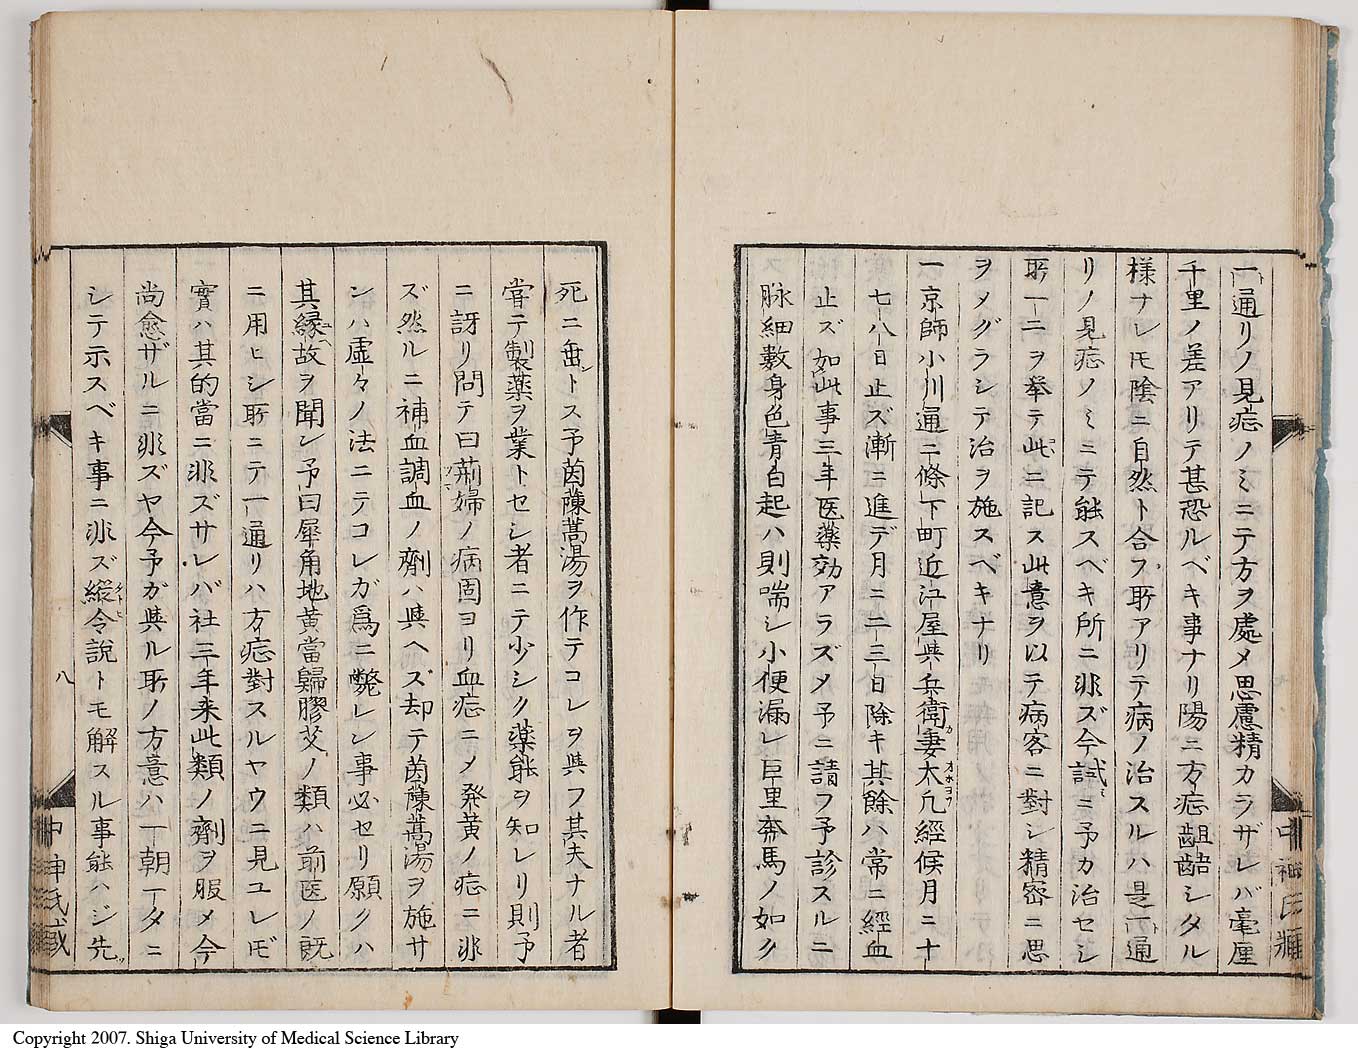 一通リノ見症ノミニテ方ヲ處メ思慮精カラザレバ毫厘
千里ノ差アリテ甚恐ルベキ事ナリ陽ニ方症齟齬シタル
様ナレ𪜈陰ニ自然ト合フ所アリテ病ノ治スルハ是一通
リノ見症ノミニテ能スベキ所ニ非ズ今試ミニ予カ治セシ
所一二ヲ挙テ此ニ記ス此意ヲ以テ病客ニ對シ精密ニ思
ヲメグラシテ治ヲ施スベキナリ
一京師小川通二條下町近江屋與兵衛妻太凢經候月ニ十
七八日止ズ漸ニ進デ月ニ二三日除キ其餘ハ常ニ經血
止ズ如此事三年医薬効アラズメ予ニ請フ予診スルニ
脉細數身色青白起ハ則喘シ小便漏レ巨里奔馬ノ如ク
死ニ垂トス予茵蔯蒿湯ヲ作テコレヲ與フ其夫ナル者
嘗テ製薬ヲ業トセシ者ニテ少シク薬能ヲ知レリ則予
ニ訝リ問テ曰荊婦ノ病固ヨリ血症ニメ発黄ノ症ニ非
ズ然ルニ補血調血ノ劑ハ與ヘズ却テ茵蔯蒿湯ヲ施サ
ンハ虚々ノ法ニテコレガ爲ニ斃レン事必セリ願クハ
其縁故ヲ聞ン予曰犀角地黄當歸膠艾ノ類ハ前医ノ既
ニ用ヒシ所ニテ一通リハ方症對スルヤウニ見ユレ𪜈
實ハ其的當ニ非ズサレバ社三年来此類ノ劑ヲ服メ今
尚愈ザルニ非ズヤ今予ガ與ル所ノ方意ハ一朝一タニ
シテ示スベキ事ニ非ズ縦令説トモ解スル事能ハジ先
八
Copyright 2007. Shiga University of Medical Science Library